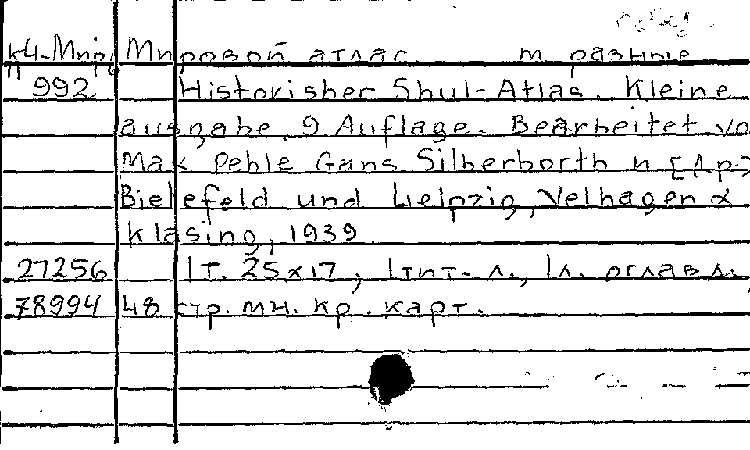 К4-Мир Мировой атлас м. разные
992 Historisher Shul-Atlas. Kleine
Ausgabe. 9 Auflage. Bearbeitet vo
Max Pehle Gans Silberborth и [др>
Bielefeld und Leipzig, Velhagen &
Klasing, 1939
27256 1т. 25х17, 1тит. л., 1л. оглавл.
78994 48 стр. мн. кр. карт.